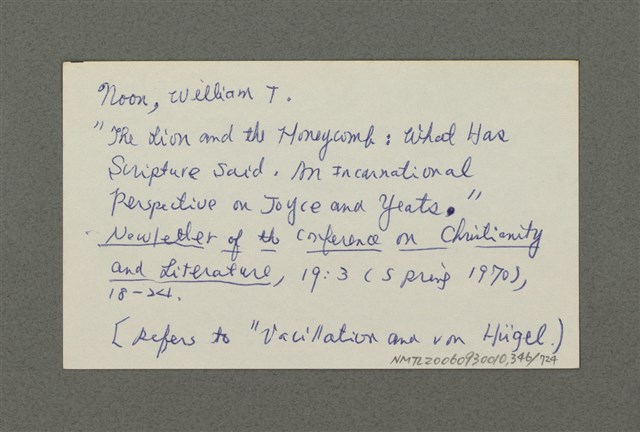 Noon, William T.
"The Lion and the Honeycomb: What Has
Scripture Said. An Incarnational
Perspective on Joyce and Yeats."
Newsletter of the Conference on Christianity
and Literature, 19:3 (Spring 1970),
18-24.
[Refers to "Vacillation and von Hügel.)
NMTL20060930010,346/724